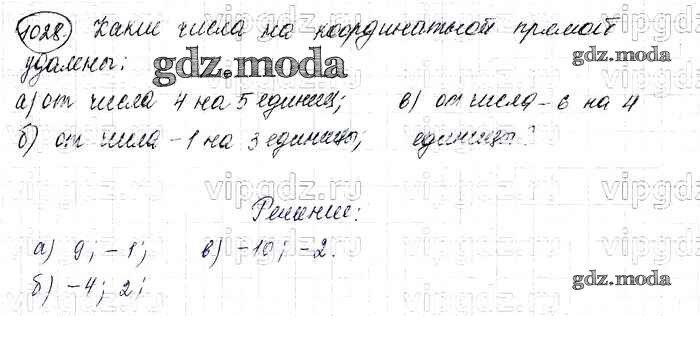 1028. Какие числа на координатной прямой
удалены:
gdz.moda
а) от числа 4 на 5 единиц; в) от числа -6 на 4
б) от числа -1 на 3 единицы, единицы?
vipgdz.ru
Решение:
а) 9; -1; в) -10; -2.
б) -4; 2;
gdz.moda